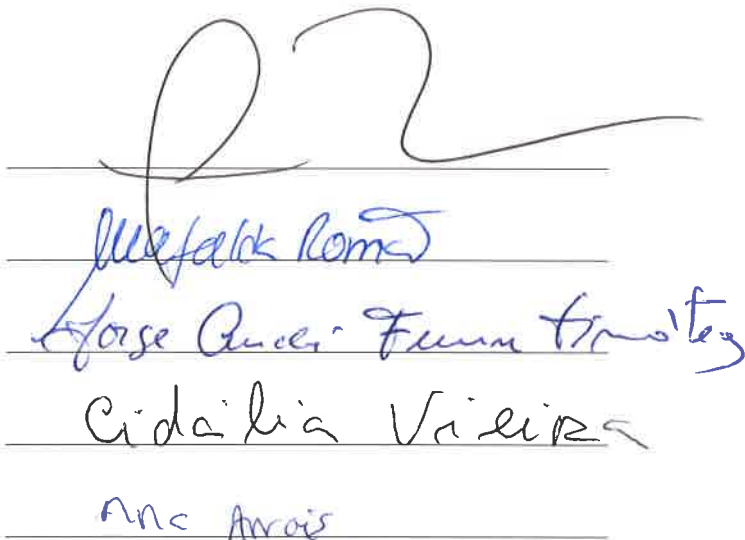 Mafalda Romão
Jorge Timóteo
Cidália Vieira
Ana Arrais